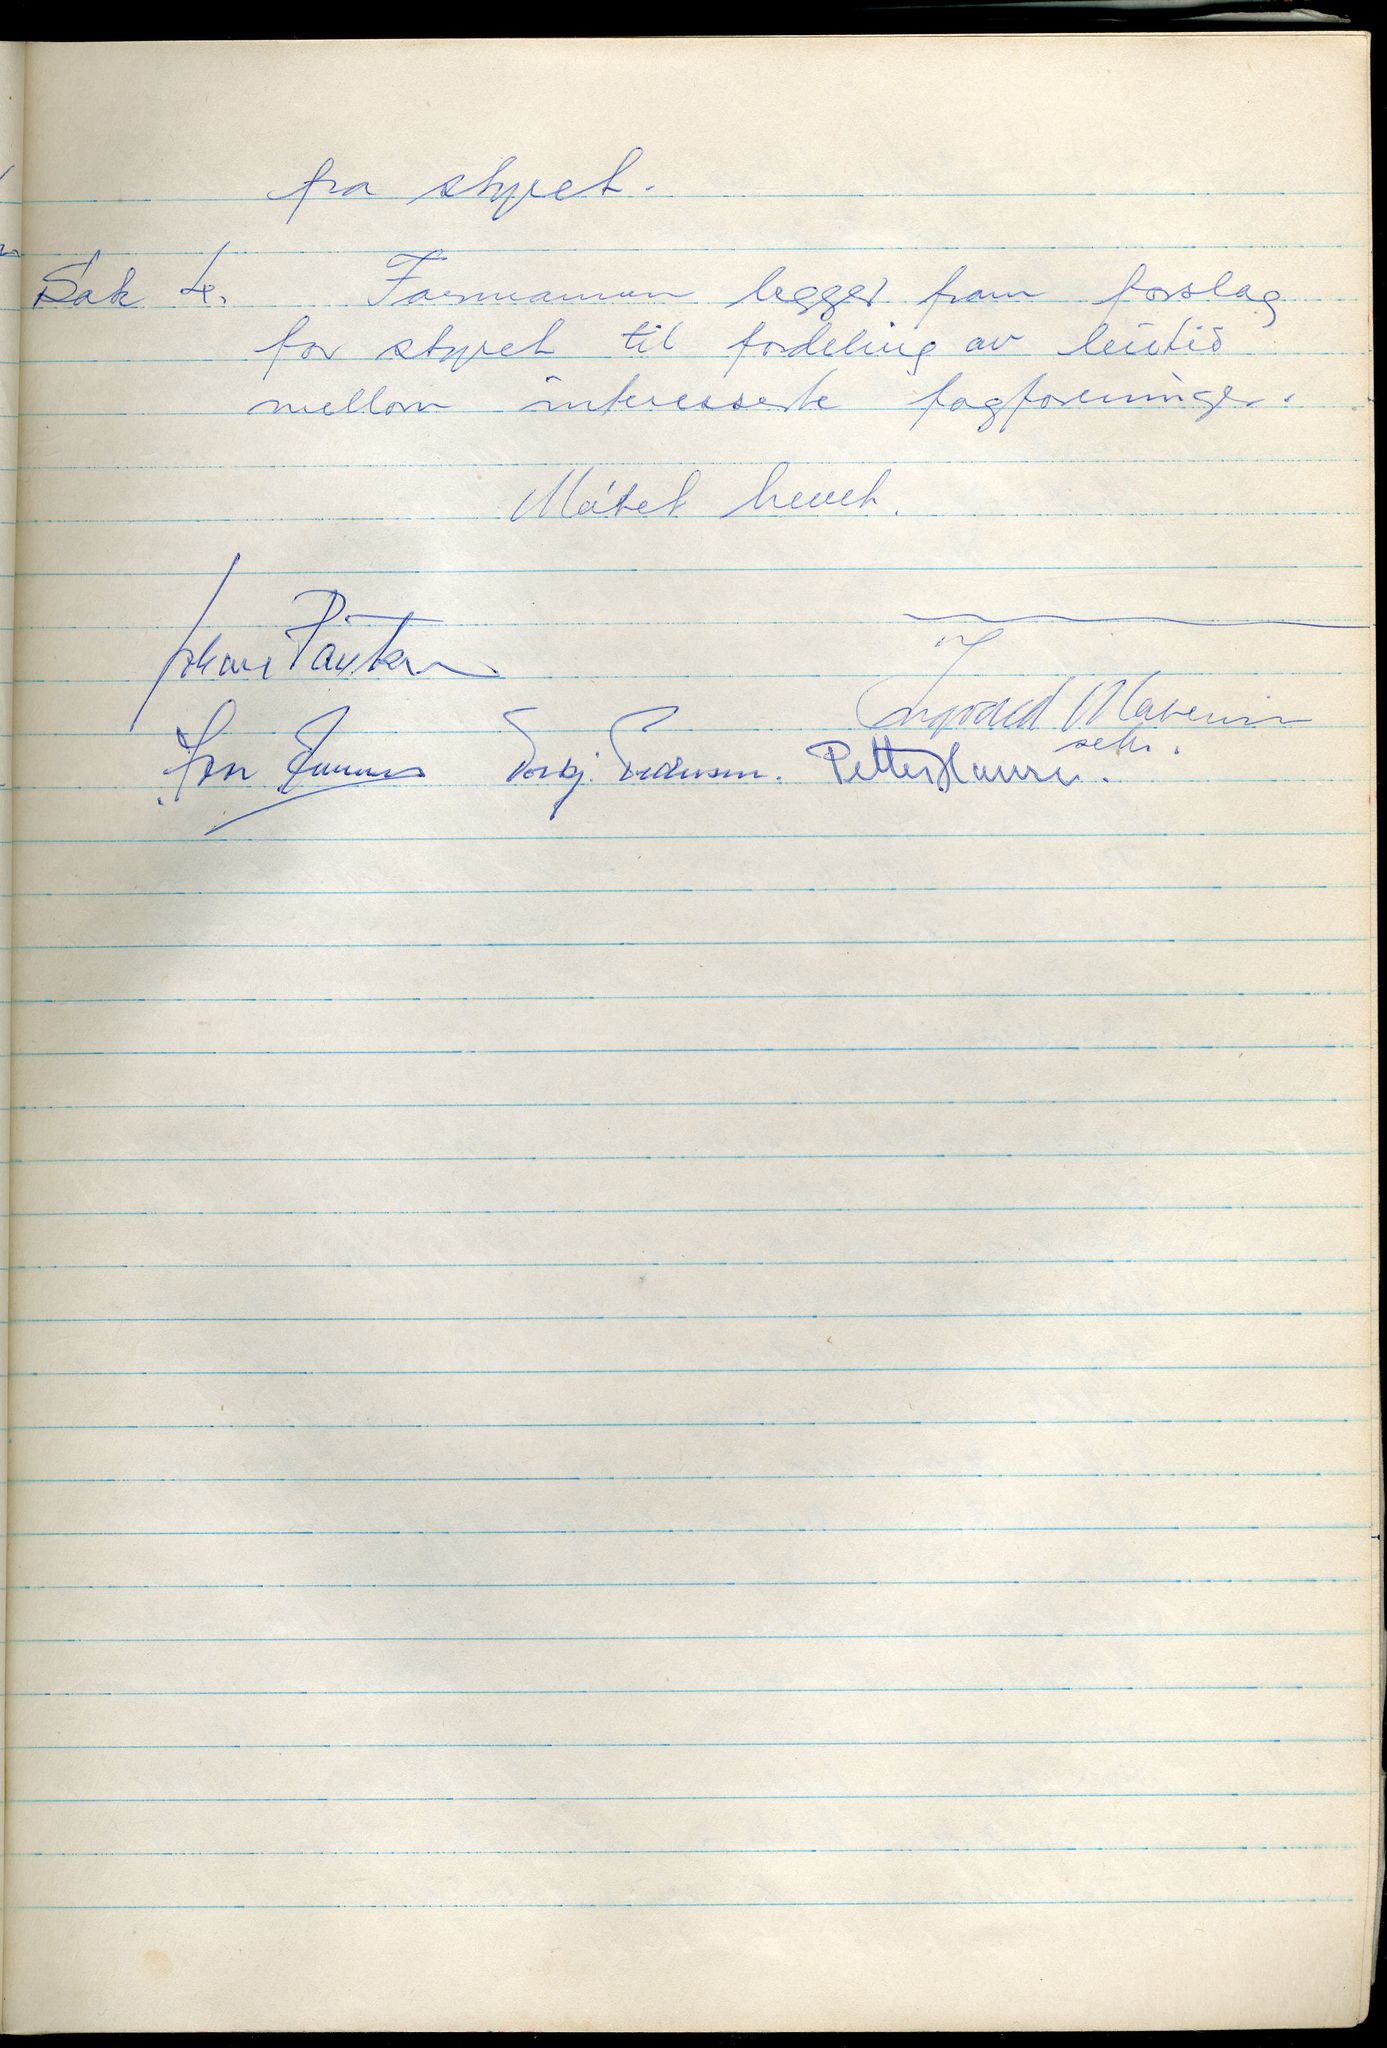 fra styret.
Sak 4. Formannen legger fram forslag
for styret til fordeling av leietid
mellom interesserte fagforeninger.
Møtet hevet.
Ingvald
sekr.
Torbj. Pedersen. Petter Hansen.